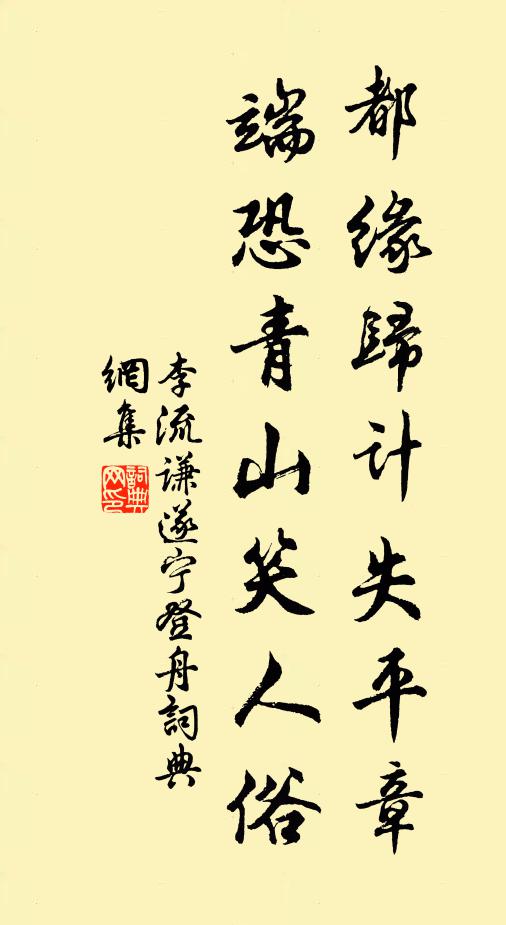 都缘歸计失平章
端恐青山笑人俗
李流谦遂宁登舟詞典
網集
詞典网印